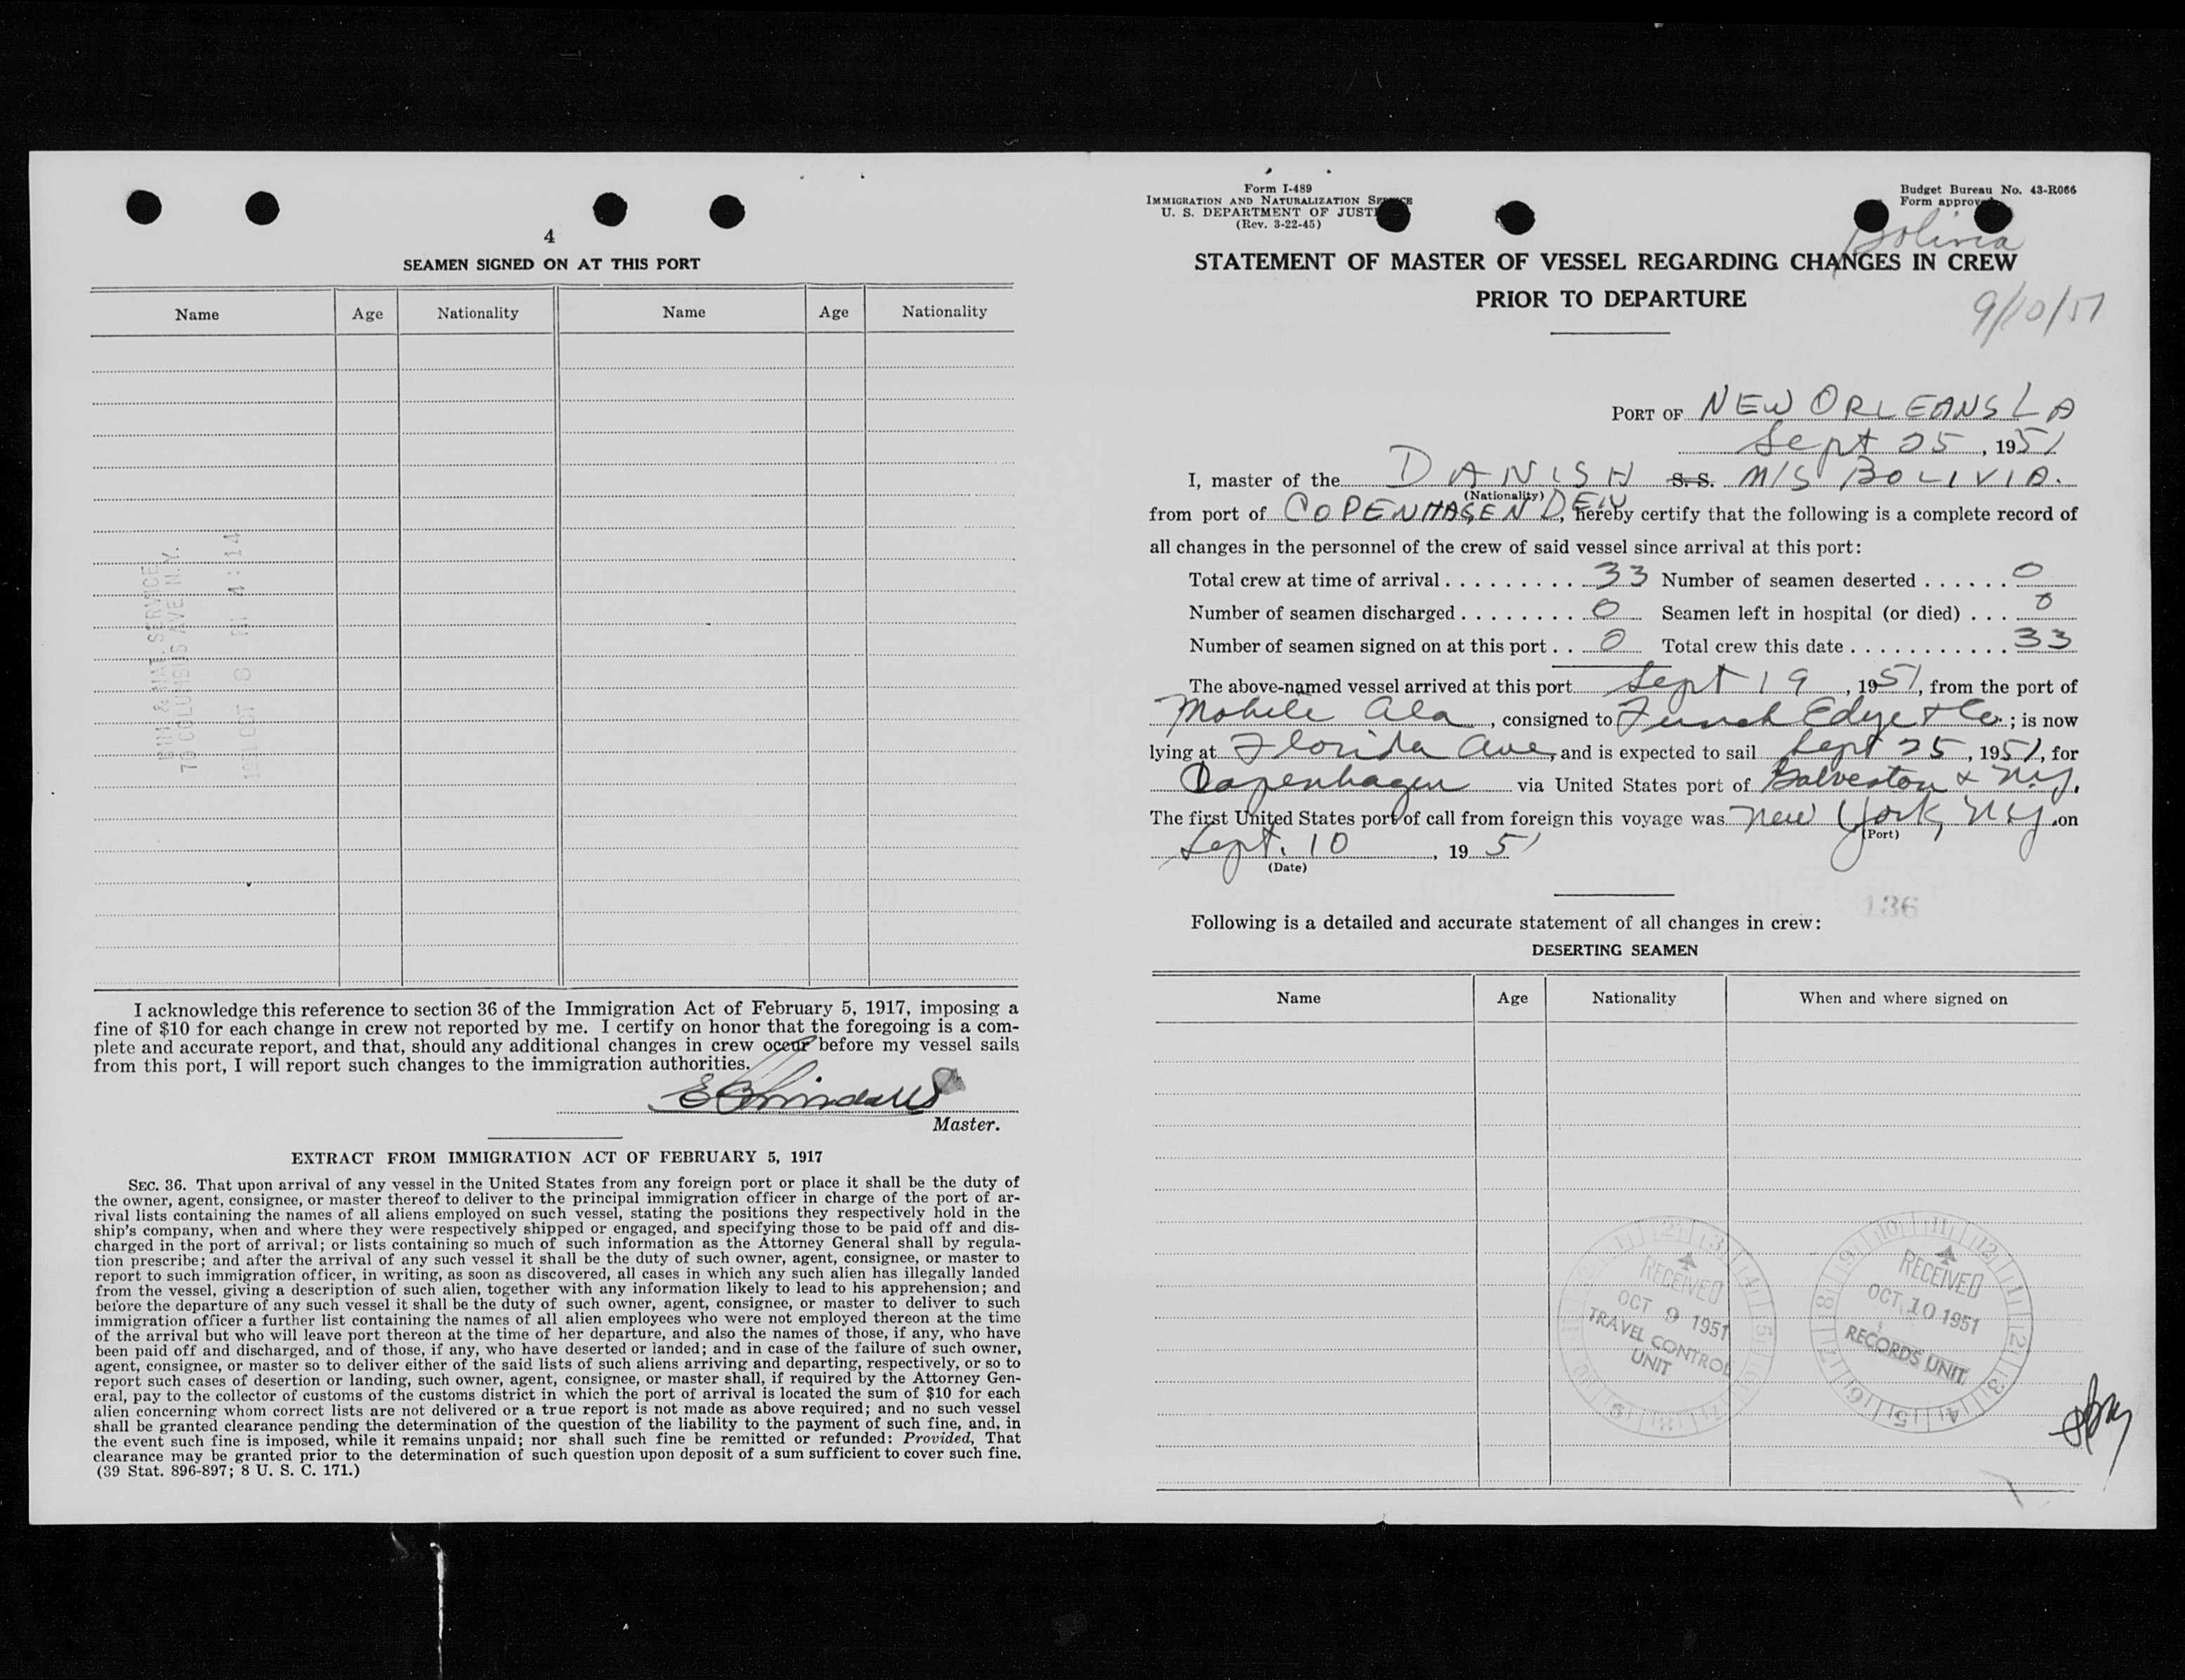 4
SEAMEN SIGNED ON AT THIS PORT
Name Age Nationality Name Age Nationality
IMM & NAT. SERVICE
70 COLUMBUS AVE. N.Y.
1951 OCT 8 PM 4:14
I acknowledge this reference to section 36 of the Immigration Act of February 5, 1917, imposing a
fine of $10 for each change in crew not reported by me. I certify on honor that the foregoing is a com-
plete and accurate report, and that, should any additional changes in crew occur before my vessel sails
from this port, I will report such changes to the immigration authorities.
Master.
EXTRACT FROM IMMIGRATION ACT OF FEBRUARY 5, 1917
SEC. 36. That upon arrival of any vessel in the United States from any foreign port or place it shall be the duty of
the owner, agent, consignee, or master thereof to deliver to the principal immigration officer in charge of the port of ar-
rival lists containing the names of all aliens employed on such vessel, stating the positions they respectively hold in the
ship's company, when and where they were respectively shipped or engaged, and specifying those to be paid off and dis-
charged in the port of arrival; or lists containing so much of such information as the Attorney General shall by regula-
tion prescribe; and after the arrival of any such vessel it shall be the duty of such owner, agent, consignee, or master to
report to such immigration officer, in writing, as soon as discovered, all cases in which any such alien has illegally landed
from the vessel, giving a description of such alien, together with any information likely to lead to his apprehension; and
before the departure of any such vessel it shall be the duty of such owner, agent, consignee, or master to deliver to such
immigration officer a further list containing the names of all alien employees who were not employed thereon at the time
of the arrival but who will leave port thereon at the time of her departure, and also the names of those, if any, who have
been paid off and discharged, and of those, if any, who have deserted or landed; and in case of the failure of such owner,
agent, consignee, or master so to deliver either of the said lists of such aliens arriving and departing, respectively, or so to
report such cases of desertion or landing, such owner, agent, consignee, or master shall, if required by the Attorney Gen-
eral, pay to the collector of customs of the customs district in which the port of arrival is located the sum of $10 for each
alien concerning whom correct lists are not delivered or a true report is not made as above required; and no such vessel
shall be granted clearance pending the determination of the question of the liability to the payment of such fine, and, in
the event such fine is imposed, while it remains unpaid; nor shall such fine be remitted or refunded: Provided, That
clearance may be granted prior to the determination of such question upon deposit of a sum sufficient to cover such fine.
(39 Stat. 896-897; 8 U. S. C. 171.)
Form I-489
IMMIGRATION AND NATURALIZATION SERVICE
U. S. DEPARTMENT OF JUSTICE
(Rev. 3-22-45)
Budget Bureau No. 43-R066
Form approved
Bolivia
STATEMENT OF MASTER OF VESSEL REGARDING CHANGES IN CREW
PRIOR TO DEPARTURE
9/10/51
PORT OF NEW ORLEANS LA
Sept 25, 1951
I, master of the DANISH S.S. M/S BOLIVIA.
(Nationality)
from port of COPENHAGEN DEN, hereby certify that the following is a complete record of
all changes in the personnel of the crew of said vessel since arrival at this port:
Total crew at time of arrival . . . . . . . . . 33 Number of seamen deserted . . . . . . 0
Number of seamen discharged . . . . . . . . 0 Seamen left in hospital (or died) . . . 0
Number of seamen signed on at this port . . 0 Total crew this date . . . . . . . . . . . 33
The above-named vessel arrived at this port Sept 19, 1951, from the port of
Mobile Ala, consigned to Funch Edye & Co.; is now
lying at Florida Ave, and is expected to sail Sept 25, 1951, for
Copenhagen via United States port of Galveston & N.Y.
The first United States port of call from foreign this voyage was New York, NY on
(Port)
Sept. 10, 1951
(Date)
136
Following is a detailed and accurate statement of all changes in crew:
DESERTING SEAMEN
Name Age Nationality When and where signed on
RECEIVED
OCT 9 1951
TRAVEL CONTROL
UNIT
RECEIVED
OCT 10 1951
RECORDS UNIT